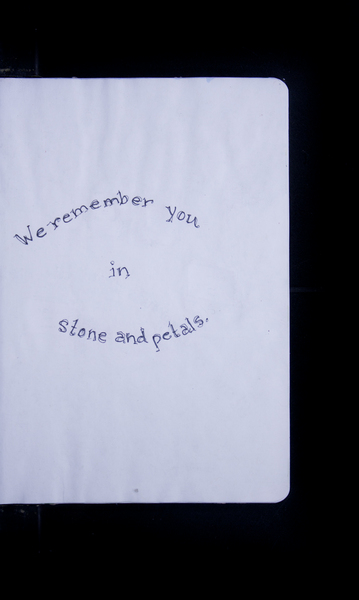 We remember you
in
stone and petals.